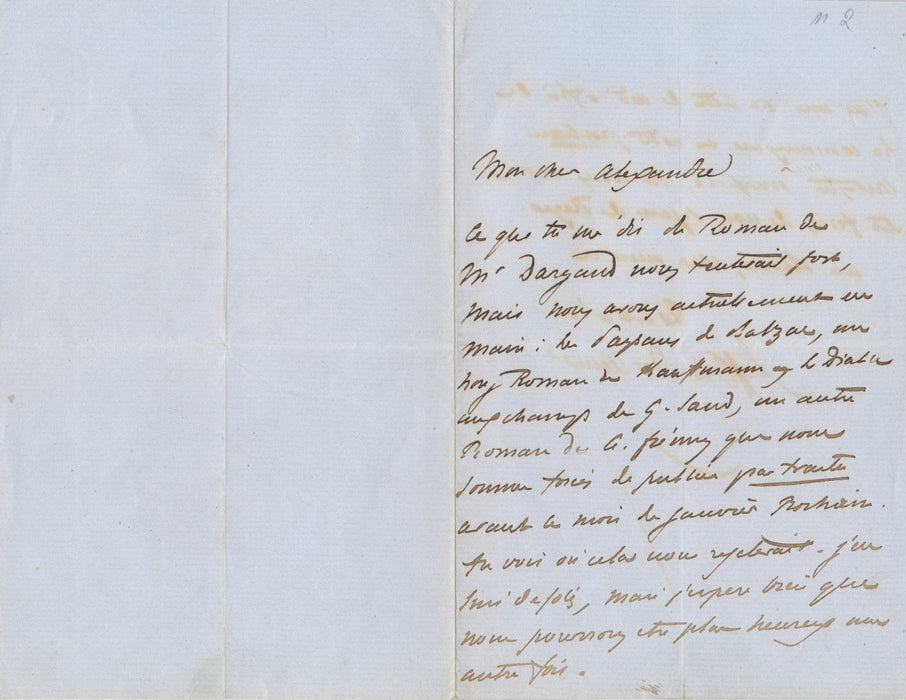 n 2
Mon cher Alexandre
Ce que tu me dis du Roman de
Mr Dargaud nous tenterait fort,
mais nous avons actuellement en
main : les Paysans de Balzac, un
Roman de Kauffmann le Diable
aux champs de G. Sand, un autre
Roman de A. frémy que nous
sommes forcés de publier par traité
avant le mois de Janvier Prochain.
tu vois où cela nous rejeterait. j'en
suis désolé, mais j'espère bien que
nous pourrons être plus heureux une
autre fois.